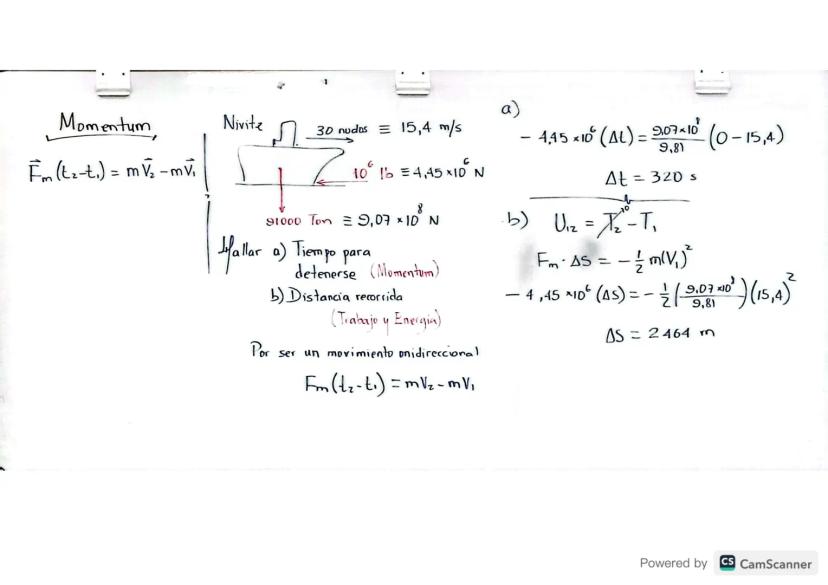 Momentum
F⃗m (t₂-t₁) = mV⃗₂ - mV⃗₁
30 nudos ≡ 15,4 m/s
10⁶ lb ≡ 4,45 × 10⁶ N
91000 Ton ≡ 9,07 × 10⁸ N
Hallar a) Tiempo para
detenerse (Momentum)
b) Distancia recorrida
(Trabajo y Energía)
Por ser un movimiento unidireccional
Fm (t₂-t₁) = mV₂ - mV₁
a)
- 4,45 × 10⁶ (Δt) = 9,07×10⁸/9,81 (0 - 15,4)
Δt = 320 s
b) U₁₂ = T₂ - T₁
Fm · ΔS = - 1/2 m(V₁)²
- 4,45 × 10⁶ (ΔS) = - 1/2 (9,07×10⁸/9,81)(15,4)²
ΔS = 2464 m
Powered by CS CamScanner